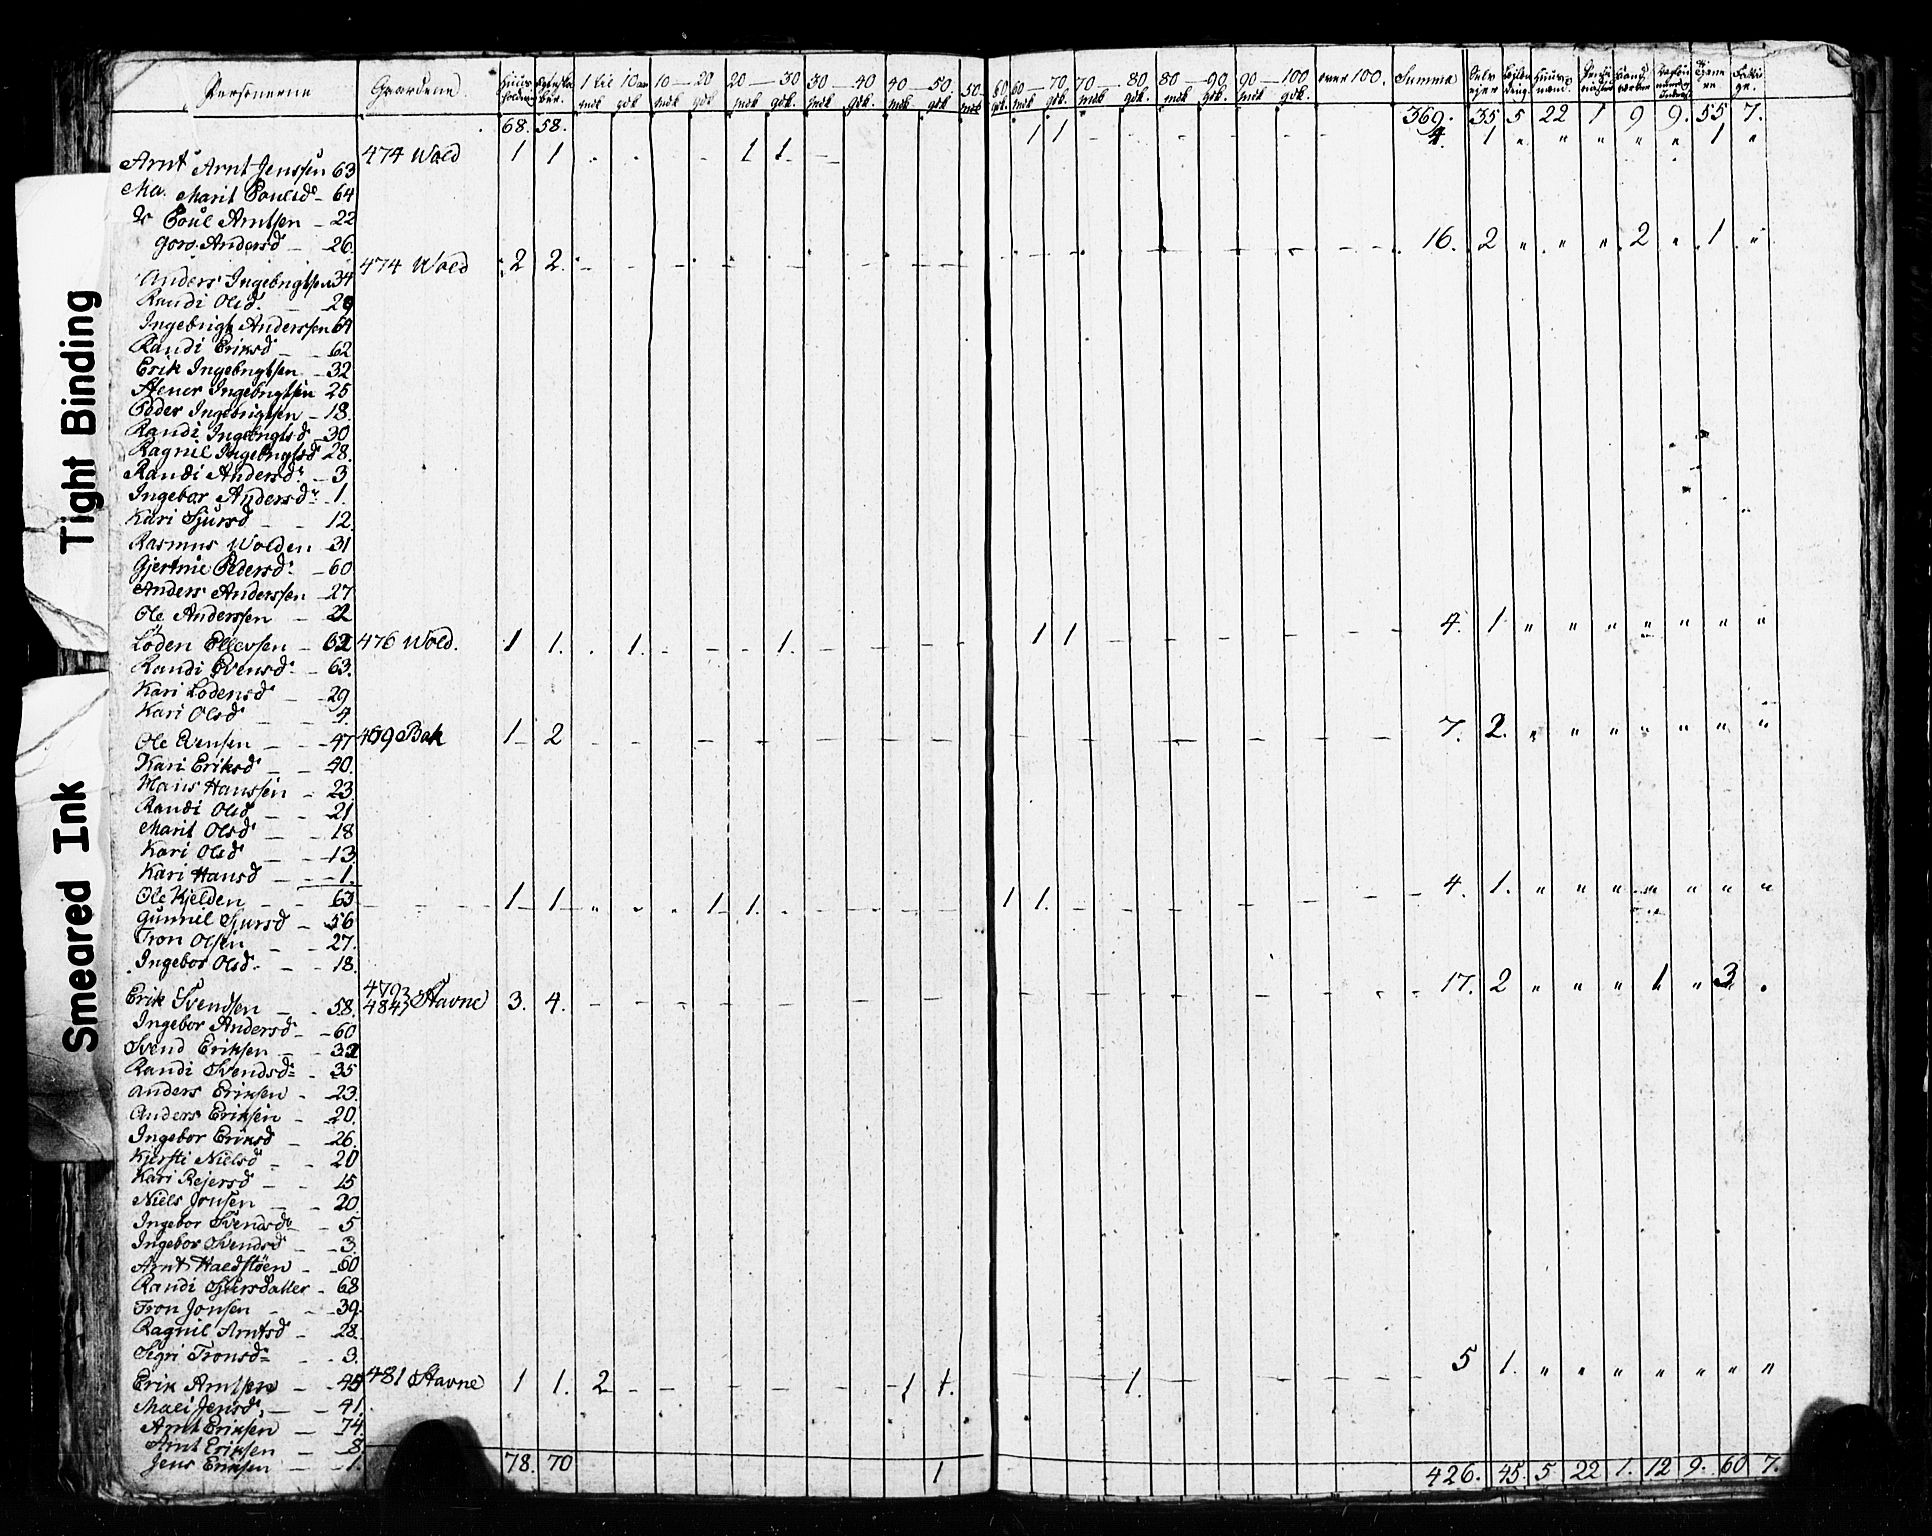 Tight Binding
Smeared Ink
Personerne Gaardene Huus 1 til 10 10 — 20 20 — 30 30 — 40 40 50 50 60 60 — 70 70 — 80 80 — 90 90 — 100 over 100. Summa
mdk gdk mdk gdk mdk gdk. mdk gdk. mdk gdk mdk gdk. mdk gdk. mdk gdk. mdk gdk. mdk gdk.
68. 58. 369. 35 5 22 1 9 9. 55 7.
Arnt Arnt Jenssen 63 474 Wold 1 1 1 1 1 1 4. 1 " " " " " 1 "
Ma. Marit Poulsd - 64
Poul Arntsen - 22
Andersd - 26
Anders Ingebrigtsen 34 474 Wold 2 2. 16. 2 " " " 2 " 1 "
Randi Olsd. 29
Ingebrigt Anderssen 64
Randi Eriksd - 62
Erik Ingebrigtsen 32
Stener Ingebrigtsen 25
Peder Ingebrigtsen - 18.
Randi Ingebrigtsd 30
Ragnil Ingebrigtsd 28.
Randi Andersd - 3
Ingebor Andersd - 1
Kari Sjursd - 12.
Rasmus Wolden 31
Gjertrue Pedersd - 60
Anders Anderssen - 27
Ole Anderssen - 22
Loden Ellevsen - 62 476 Wold. 1 1. 1. 1. 1 1 4. 1 " " " " " " "
Randi Svensd - 63.
Kari Lodensd - 29
Kari Olsd - 4.
Ole Evensen - 47 469 Bak 1 2 7. 2. " " " " " " "
Kari Eriksd - 40.
Hans Hanssen - 23
Randi Olsd - 21
Marit Olsd - 18
Kari Olsd - 13
Kari Hansd - 1.
Ole Kjelden - 63 1 1 1 1. 1 1. 4. 1. " " " " " " "
Gunnil Sjursd - 56
Tron Olsen - 27.
Ingebor Olsd. - 18.
Erik Svendsen - 58. 479 484 Stavne 3. 4. 17. 2 " " " 1 " 3
Ingebor Andersd - 60
Svend Eriksen - 32
Randi Svendsd - 35
Anders Eriksen - 23.
Anders Eriksen - 20.
Ingebor Eriksd - 26.
Kjersti Nielsd - 20
Kari Rejersd - 15
Niels Jonsen - 20
Ingebor Svendsd - 5
Ingebor Svendsd - 3
Arnt - 60
Randi Sjursdatter - 68
Tron Jonsen - 39.
Ragnil Arntsd - 28
Sigri Tronsd - 3.
Erik Arntsen - 45 481 Stavne 1 1. 2 1 1. 1. 5 1. " " " " " " "
Mali Jensd. - 41.
Arnt Eriksen - 74
Arnt Eriksen - 8
Jens Eriksen - 1.
78. 70 1 426. 45. 5 22 1. 12 9. 60 7.